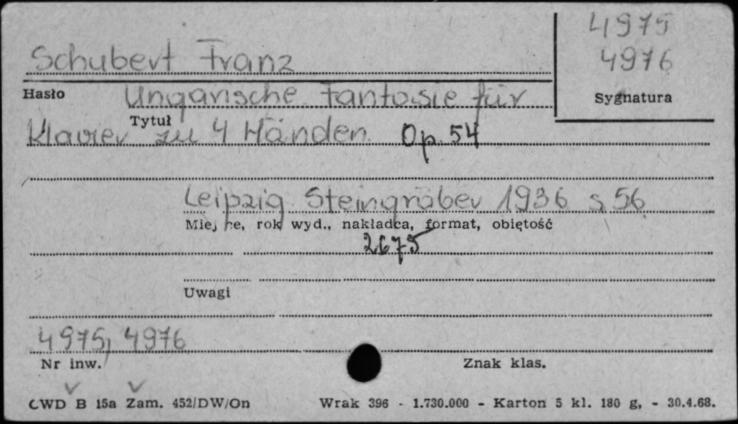 4975
Schubert Franz 4976
Hasło Ungarische Fantasie für Sygnatura
Tytuł
Klavier zu 4 Händen Op. 54
Leipzig Steingräber 1936 s 56
Miejsce, rok wyd., nakładca, format, objętość
2675
Uwagi
4975, 4976
Nr inw. Znak klas.
CWD B 15a Zam. 452/DW/On Wrak 396 - 1.730.000 - Karton 5 kl. 180 g, - 30.4.68.